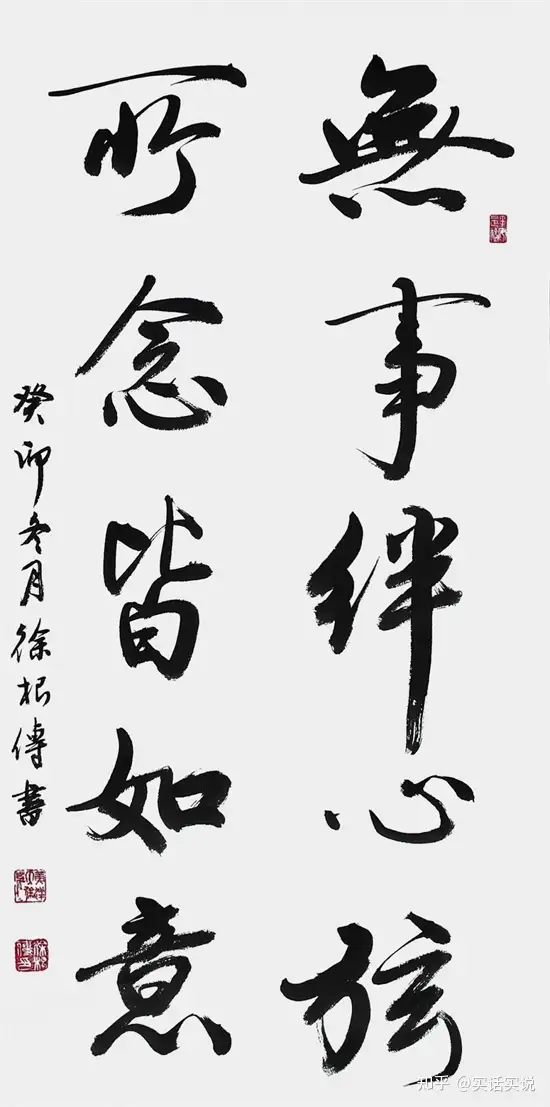 無事絆心弦
所念皆如意
癸卯冬月徐根傳書
知乎 @实话实说